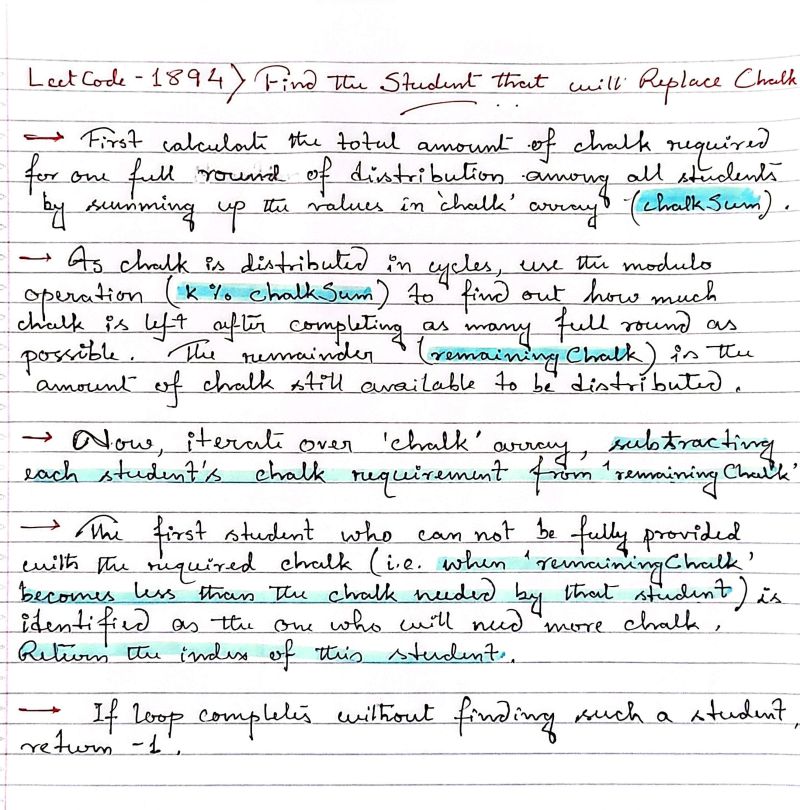 LeetCode - 1894) Find the Student that will Replace Chalk
→ First calculate the total amount of chalk required
for one full round of distribution among all students
by summing up the values in 'chalk' array (chalkSum).
→ As chalk is distributed in cycles, use the modulo
operation (K % chalkSum) to find out how much
chalk is left after completing as many full round as
possible. The remainder (remainingChalk) is the
amount of chalk still available to be distributed.
→ Now, iterate over 'chalk' array, subtracting
each student's chalk requirement from 'remainingChalk'
→ The first student who can not be fully provided
with the required chalk (i.e. when 'remainingChalk'
becomes less than the chalk needed by that student) is
identified as the one who will need more chalk.
Return the index of this student.
→ If loop completes without finding such a student,
return -1.